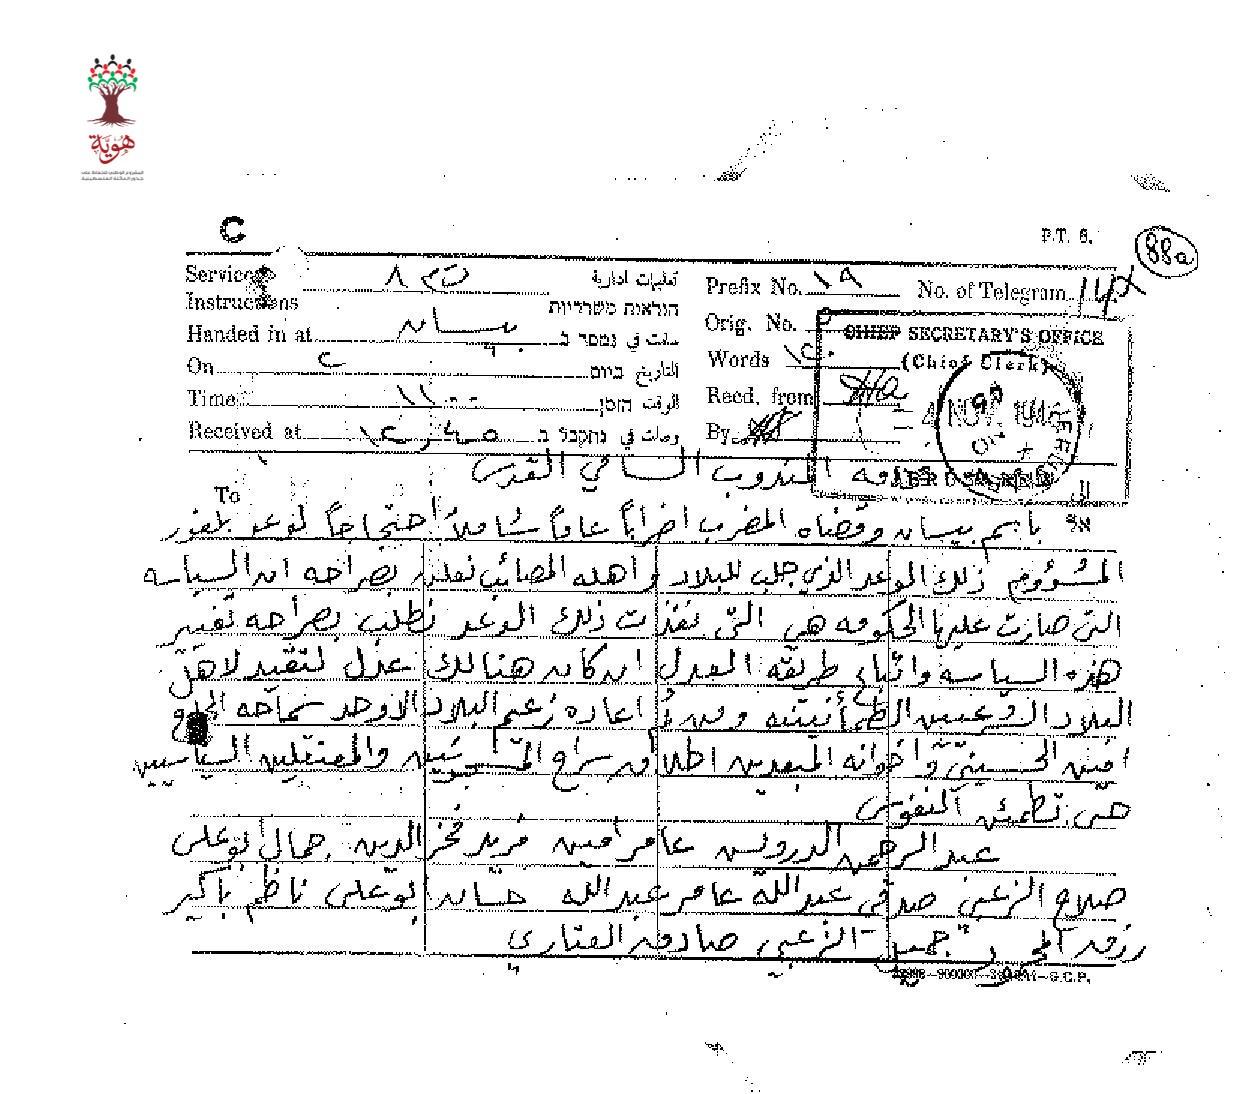 هوية
المشروع الوطني للحفاظ على
جذور العائلة الفلسطينية
C
P.T. 6.
88a
Service تعليمات ادارية
Instructions הוראות משרדיות
Handed in at بيسان سلمت في נמסר ב
On ٢ التاريخ ביום
Time ١١ الوقت הזמן
Received at وصلت في נתקבל ב
Prefix No. ١٩ No. of Telegram
Orig. No.
Words ١٢٠
Recd. from
By
CHIEF SECRETARY'S OFFICE
(Chief Clerk)
4 NOV. 1946
To المندوب السامي القدس الى
باسم بيسان وقضاه المضرب اضراباً عاماً شاملاً احتجاجاً لوعد بلفور אל
المشؤوم ذلك الوعد الذي جلب للبلاد واهله المصائب نعلن بصراحه ان السياسه
التي صارت عليها الحكومه هي التي نفذت ذلك الوعد نطلب بصراحه تغيير
هذه السياسه واتباع طريقه العدل ان كان هنالك عدل لتفيد لاهل
البلاد الطمأنينه ومن ثم اعاده زعيم البلاد الاوحد سماحه الحاج
امين الحسيني واخوانه المبعدين اطلاق سراح المسجونين والمعتقلين السياسيين
حتى تطمئن النفوس
عبد الرحمن الدرويش عامر امين فريد فخر الدين جمال ابو علي
صلاح الزعبي صدقي عبدالله عامر عبدالله حسان ابو علي ناظم باكير
رزق جميل الزعبي صادق
G.C.P.